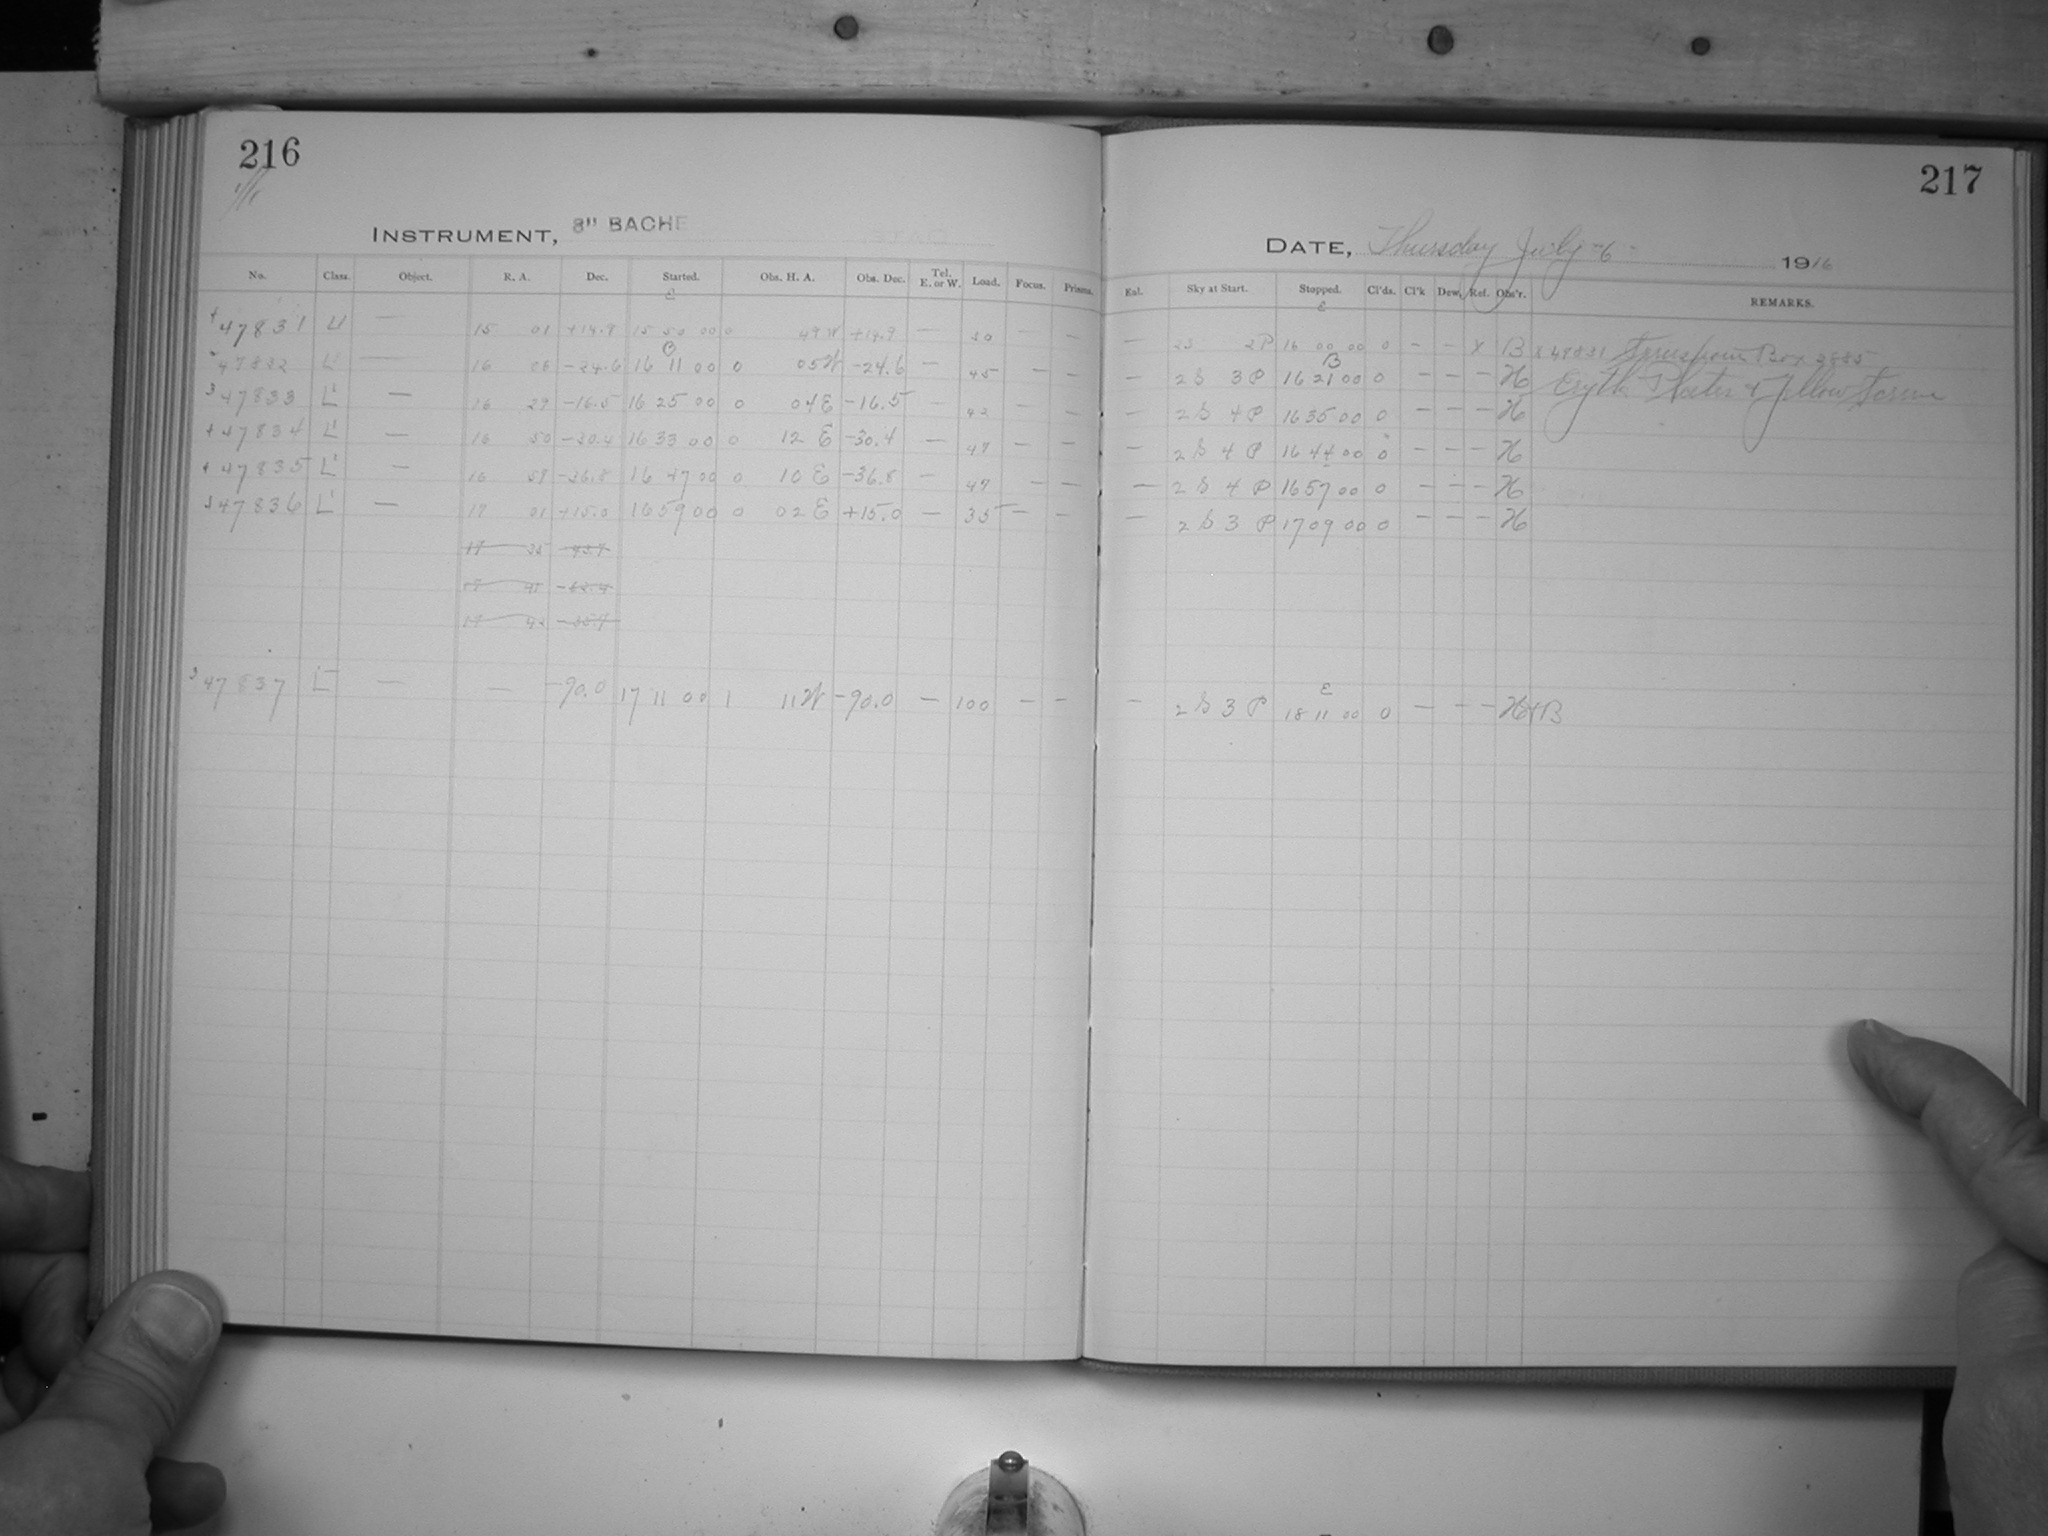 216
217
INSTRUMENT, 8" BACHE
DATE, Thursday July -6- 1916
No. Class. Object. R. A. Dec. Started. Obs. H. A. Obs. Dec. Tel. E. or W. Load. Focus. Prisms. Eal. Sky at Start. Stopped. Cl'ds. Cl'k Dew, Ref. Obs'r. REMARKS.
47831 — 15 01 +14.9 15 50 00 0 49 W +14.9 — 50 — — — 2S 2P 16 00 00 0 — — X B x 47831 Box 2885
47832 L' — 16 06 -24.6 16 11 00 0 05 W -24.6 — 45 — — — 2S 3P 16 21 00 0 — — — H & Yellow
47833 L' — 16 29 -16.5 16 25 00 0 04 E -16.5 — 42 — — — 2S 4P 16 35 00 0 — — — H
47834 L' — 16 50 -30.4 16 33 00 0 12 E -30.4 — 47 — — — 2S 4P 16 44 00 0 — — — H
47835 L' — 16 59 -36.8 16 47 00 0 10 E -36.8 — 47 — — — 2S 4P 16 57 00 0 — — — H
47836 L' — 17 01 +15.0 16 59 00 0 02 E +15.0 — 35 — — — 2S 3P 17 09 00 0 — — — H
47837 L — — -90.0 17 11 00 1 11 W -90.0 — 100 — — — 2S 3P 18 11 00 0 — — — H+B